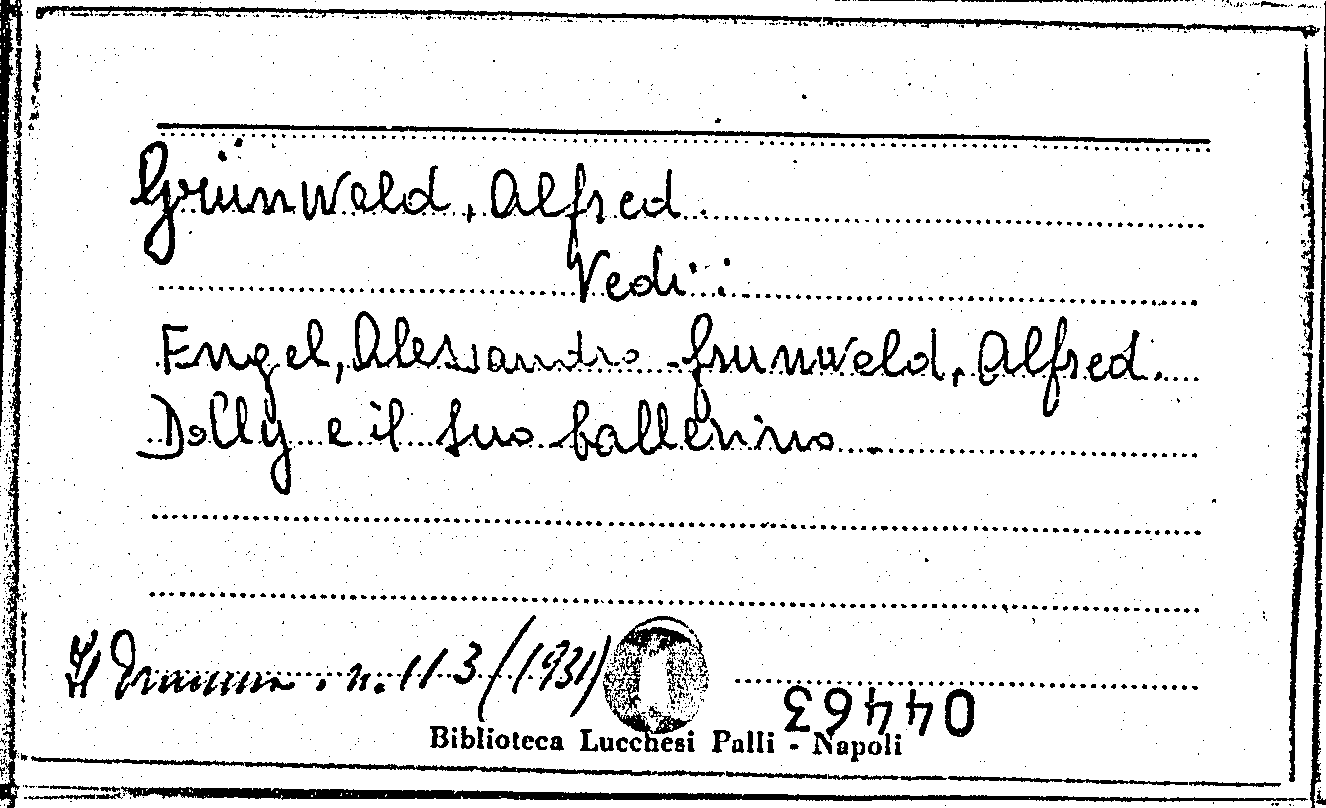 Grünwald, Alfred.
Vedi:
Engel, Alessandro - Grunwald, Alfred.
Dolly e il suo ballerino.
Il Dramma. n. 113 (1931)
04463
Biblioteca Lucchesi Palli - Napoli